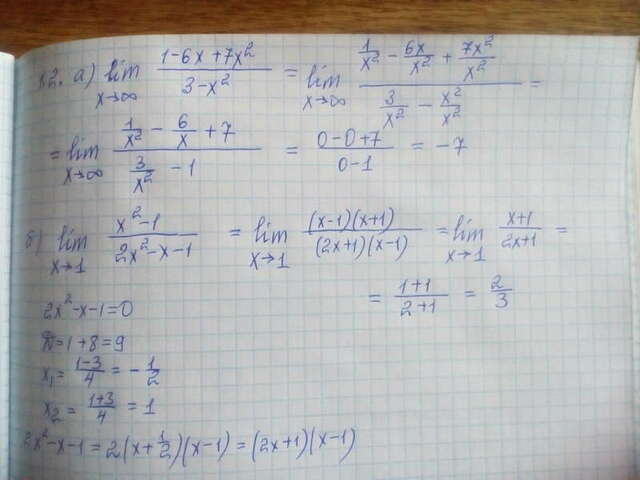 №2. а) lim x→∞ (1-6x+7x²)/(3-x²) = lim x→∞ (1/x² - 6x/x² + 7x²/x²)/(3/x² - x²/x²) =
= lim x→∞ (1/x² - 6/x + 7)/(3/x² - 1) = (0-0+7)/(0-1) = -7
б) lim x→1 (x²-1)/(2x²-x-1) = lim x→1 (x-1)(x+1)/(2x+1)(x-1) = lim x→1 (x+1)/(2x+1) =
= (1+1)/(2+1) = 2/3
2x²-x-1=0
D=1+8=9
x₁= (1-3)/4 = -1/2
x₂= (1+3)/4 = 1
2x²-x-1=2(x+1/2)(x-1)=(2x+1)(x-1)